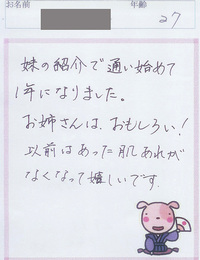 お名前 年齢 27
妹の紹介で通い始めて
1年になりました。
お姉さんは、おもしろい!
以前はあった肌あれが
なくなって嬉しいです